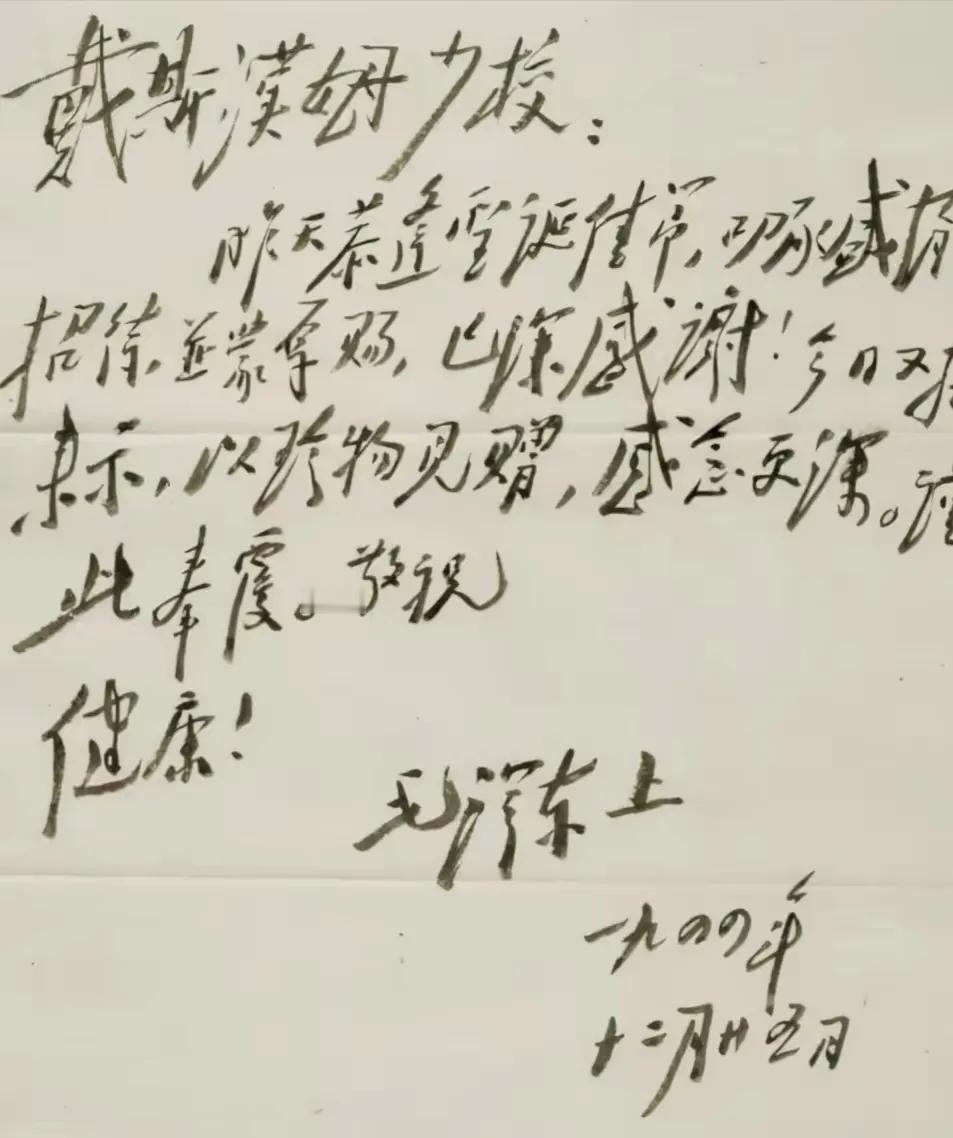 戴斯漢姆少校：
昨天恭逢聖诞佳节，叨承盛
招待，並蒙厚赐，已深感谢！今日又
来示，以珍物见贈，感念更深。
此奉覆。敬祝
健康！
毛澤东上
一九四四年
十二月廿五日